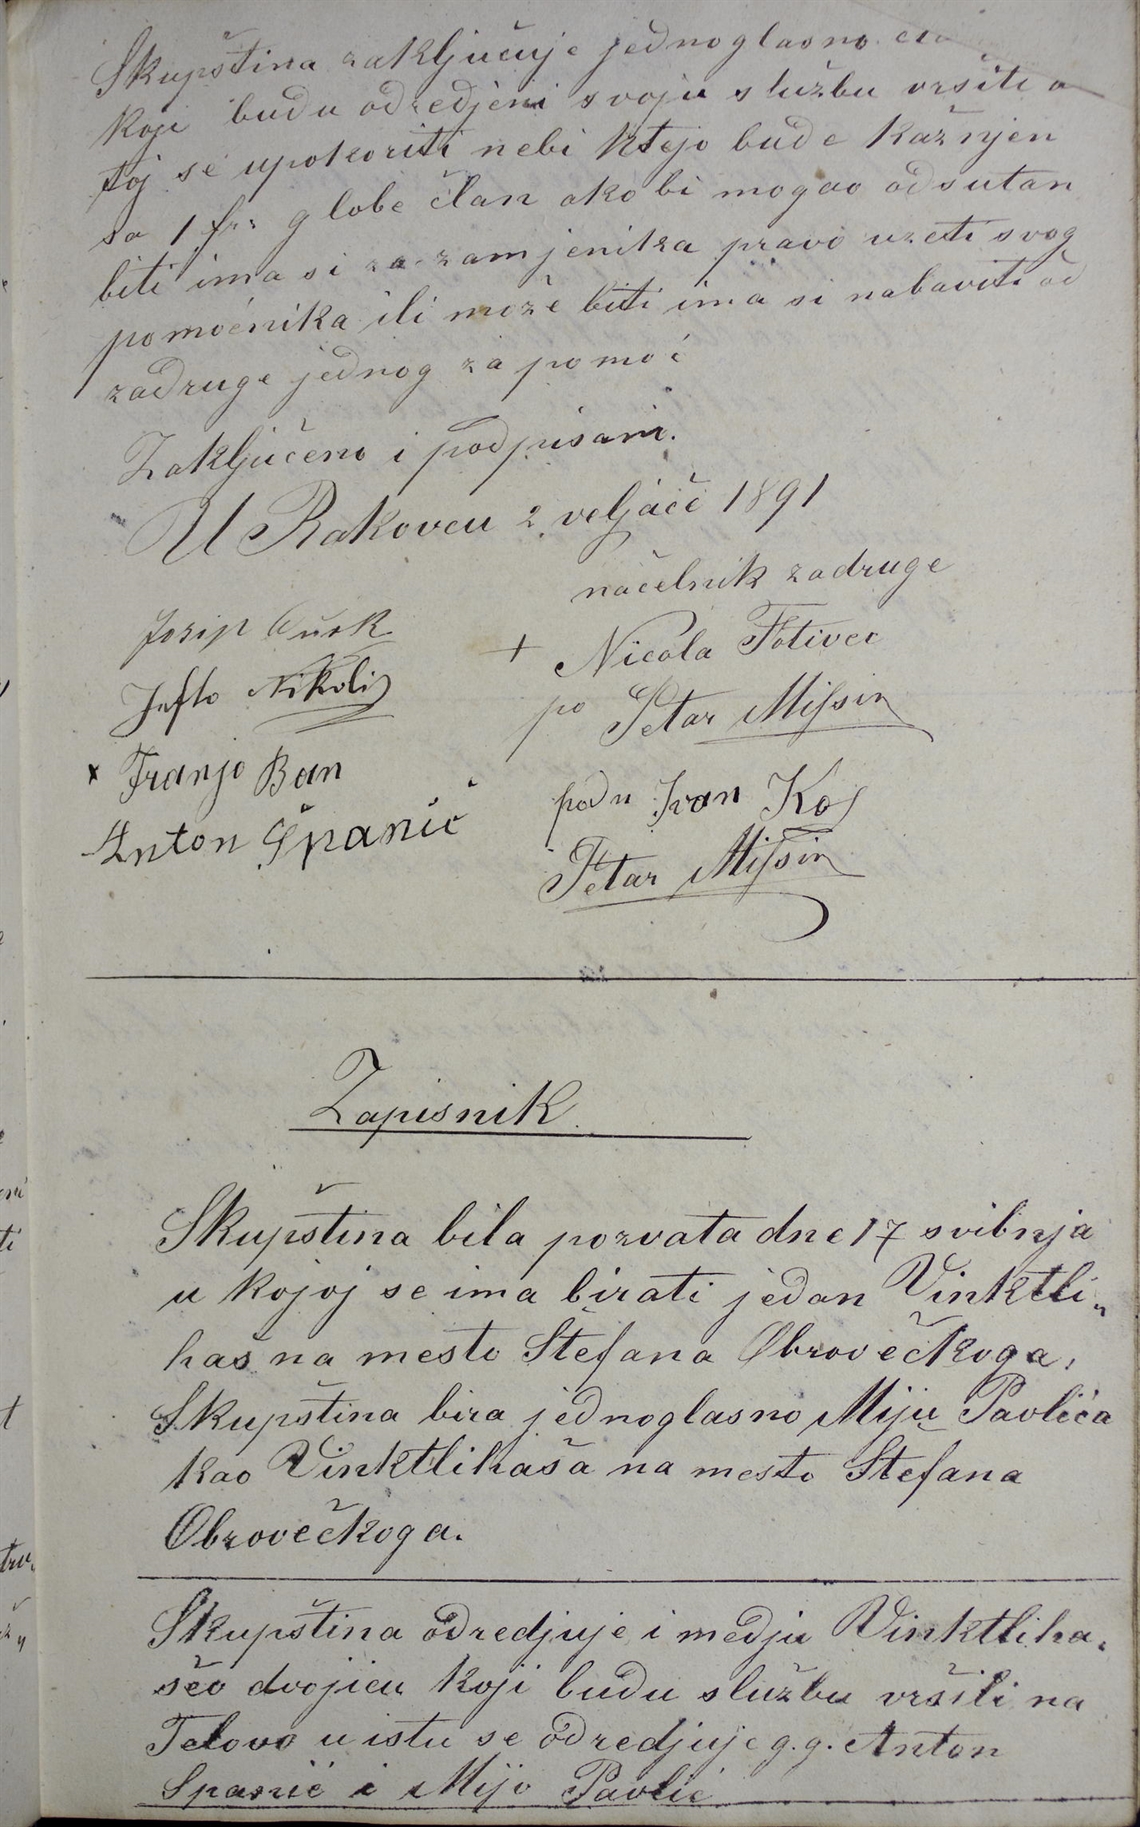 Skupština zaključuje jednoglasno
koji budu odredjeni svoju službu vršiti a
toj se upokoriti nebi htejo bude kažnjen
sa 1 frz globe član ako bi mogao odsutan
biti ima si za zamjenika pravo uzeti svog
pomoćnika ili može biti ima si nabaviti od
zadruge jednog za pomoć
Zaključeno i podpisani.
U Rakovcu 2. veljače 1891
načelnik zadruge
Josip
+ Nicola Fotivec
Jefto Nikolić
po Petar Missin
x Franjo Ban
podu Ivan Kos
Anton Španić
Petar Missin
Zapisnik
Skupština bila pozvata dne 17 svibnja
u kojoj se ima birati jedan Vinktli„
haš na mesto Štefana Obrovečkoga,
Skupština bira jednoglasno Miju Pavlića
kao Vinktlihaša na mesto Štefana
Obrovečkoga.
Skupština odredjuje i medju Vinktliha„
šeo dvojicu koji budu službu vršili na
Telovo u istu se odredjuje g.g. Anton
Spanić i Mijo Pavlić